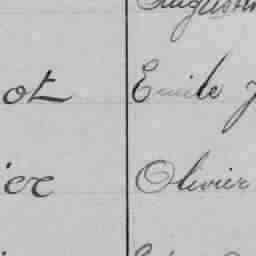 ot Emile J
ier Olivier